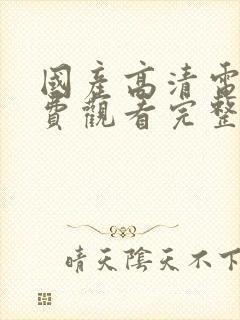 國產高清電
費觀看完整
晴天陰天不下